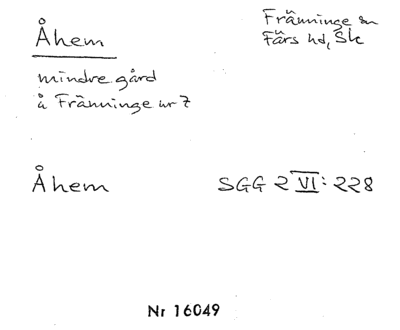 Åhem
Fränninge sn
Färs hd, Sk
mindre gård
å Fränninge nr 7
Åhem
SGG 2 VI: 228
Nr 16049